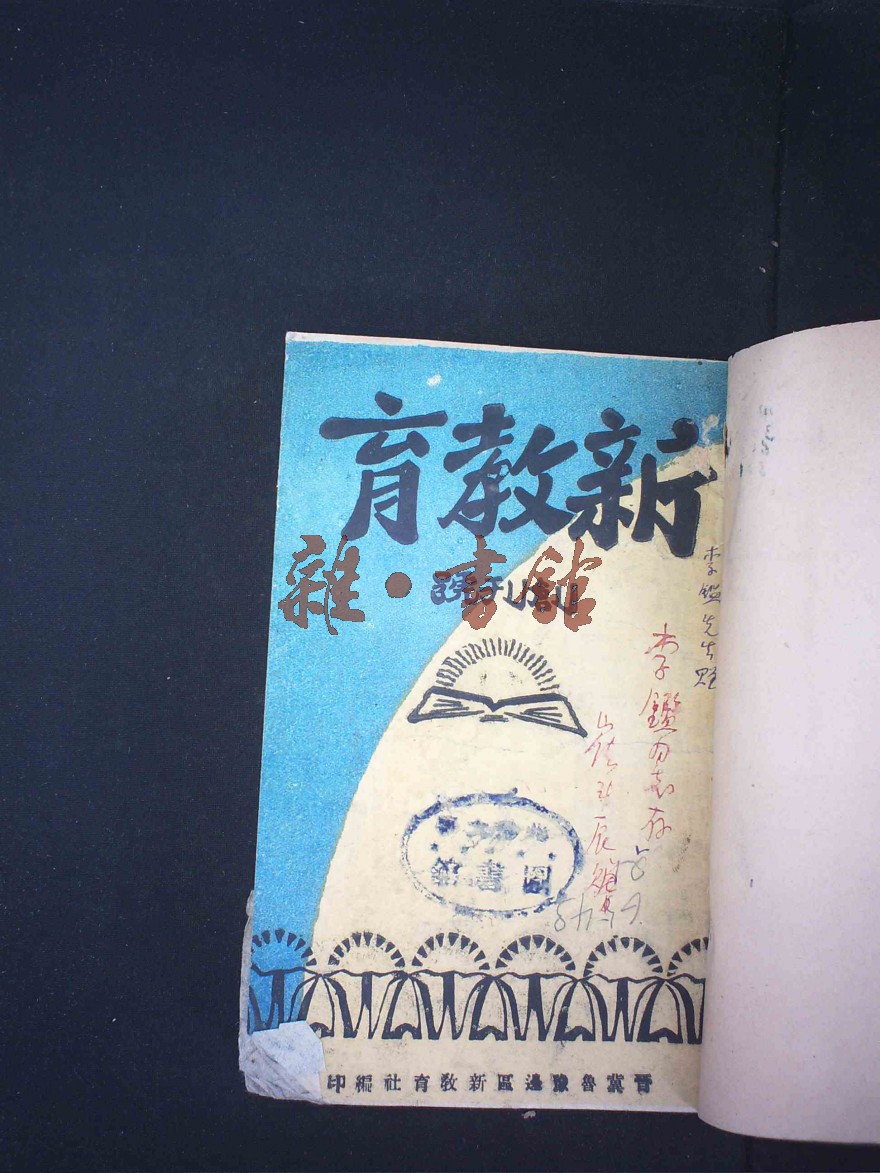 新教育
創刊號
雜·書館
李鑑先生贈
李鑑同志存
圖書館
晉冀魯豫邊區新教育社編印